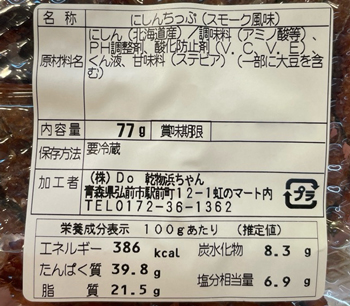 名称 にしんちっぷ(スモーク風味)
にしん(北海道産)/調味料(アミノ酸等)、
PH調整剤、酸化防止剤(V.C,V.E)、
原材料名 くん液、甘味料(ステビア) (一部に大豆を含
む)
内容量 77g 賞味期限
保存方法 要冷蔵
加工者 (株)Do 乾物浜ちゃん
青森県弘前市駅前町12-1虹のマート内
TEL0172-36-1362
プラ
栄養成分表示 100gあたり (推定値)
エネルギー 386 kcal 炭水化物 8.3 g
たんぱく質 39.8 g
塩分相当量 6.9 g
脂質 21.5 g